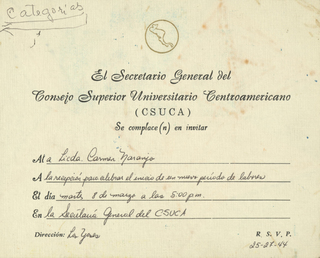 Categorías
El Secretario General del
Consejo Superior Universitario Centroamericano
(CSUCA)
Se complace(n) en invitar
Al a Licda. Carmen Naranjo
A la recepción para celebrar el inicio de un nuevo período de labores
El día martes 8 de marzo a las 5:00 p.m.
En la Secretaría General del CSUCA
Dirección: La Yoses
R. S. V. P.
25-27-44